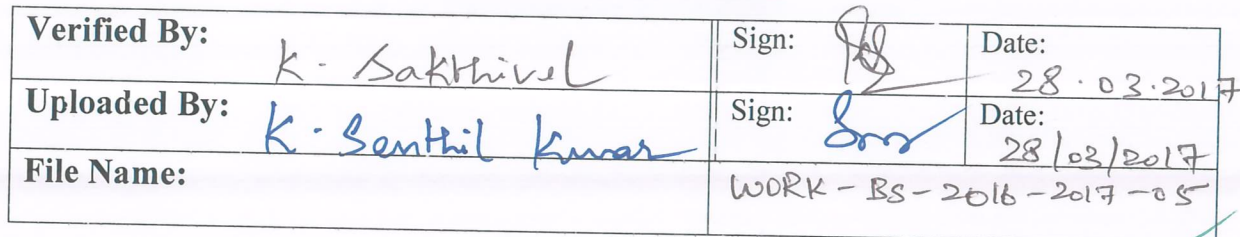 Verified By: K. Sakthivel Sign: Date: 28.03.2017
Uploaded By: K. Senthil Kumar Sign: Date: 28/03/2017
File Name: WORK-BS-2016-2017-05